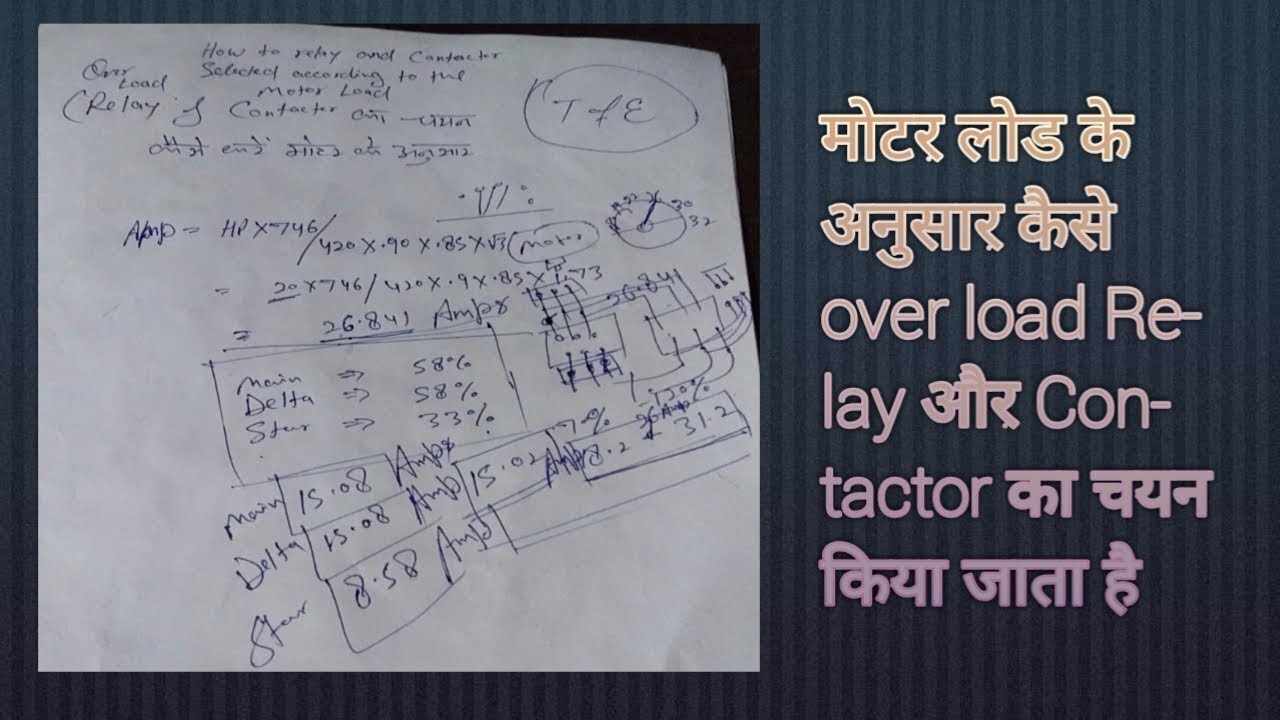 How to relay and Contactor
Selected according to the
Motor Load
Over
Load
(Relay & Contactor का चयन
कैसे करें मोटर के अनुसार
T of E
Amp = HP X 746/
420 X .90 X .85 X √3
Motor
30
32
= 20 X 746 / 420 X .9 X .85 X 1.73
26.841
= 26.841 Amps
Main ⇒ 58%
Delta ⇒ 58%
Star ⇒ 33%
120%
26 Amp
31.2
70%
18.2
15.02 Amp
Main 15.08 Amps
Delta 15.08 Amp
Star 8.58 Amp
मोटर लोड के
अनुसार कैसे
over load Re-
lay और Con-
tactor का चयन
किया जाता है